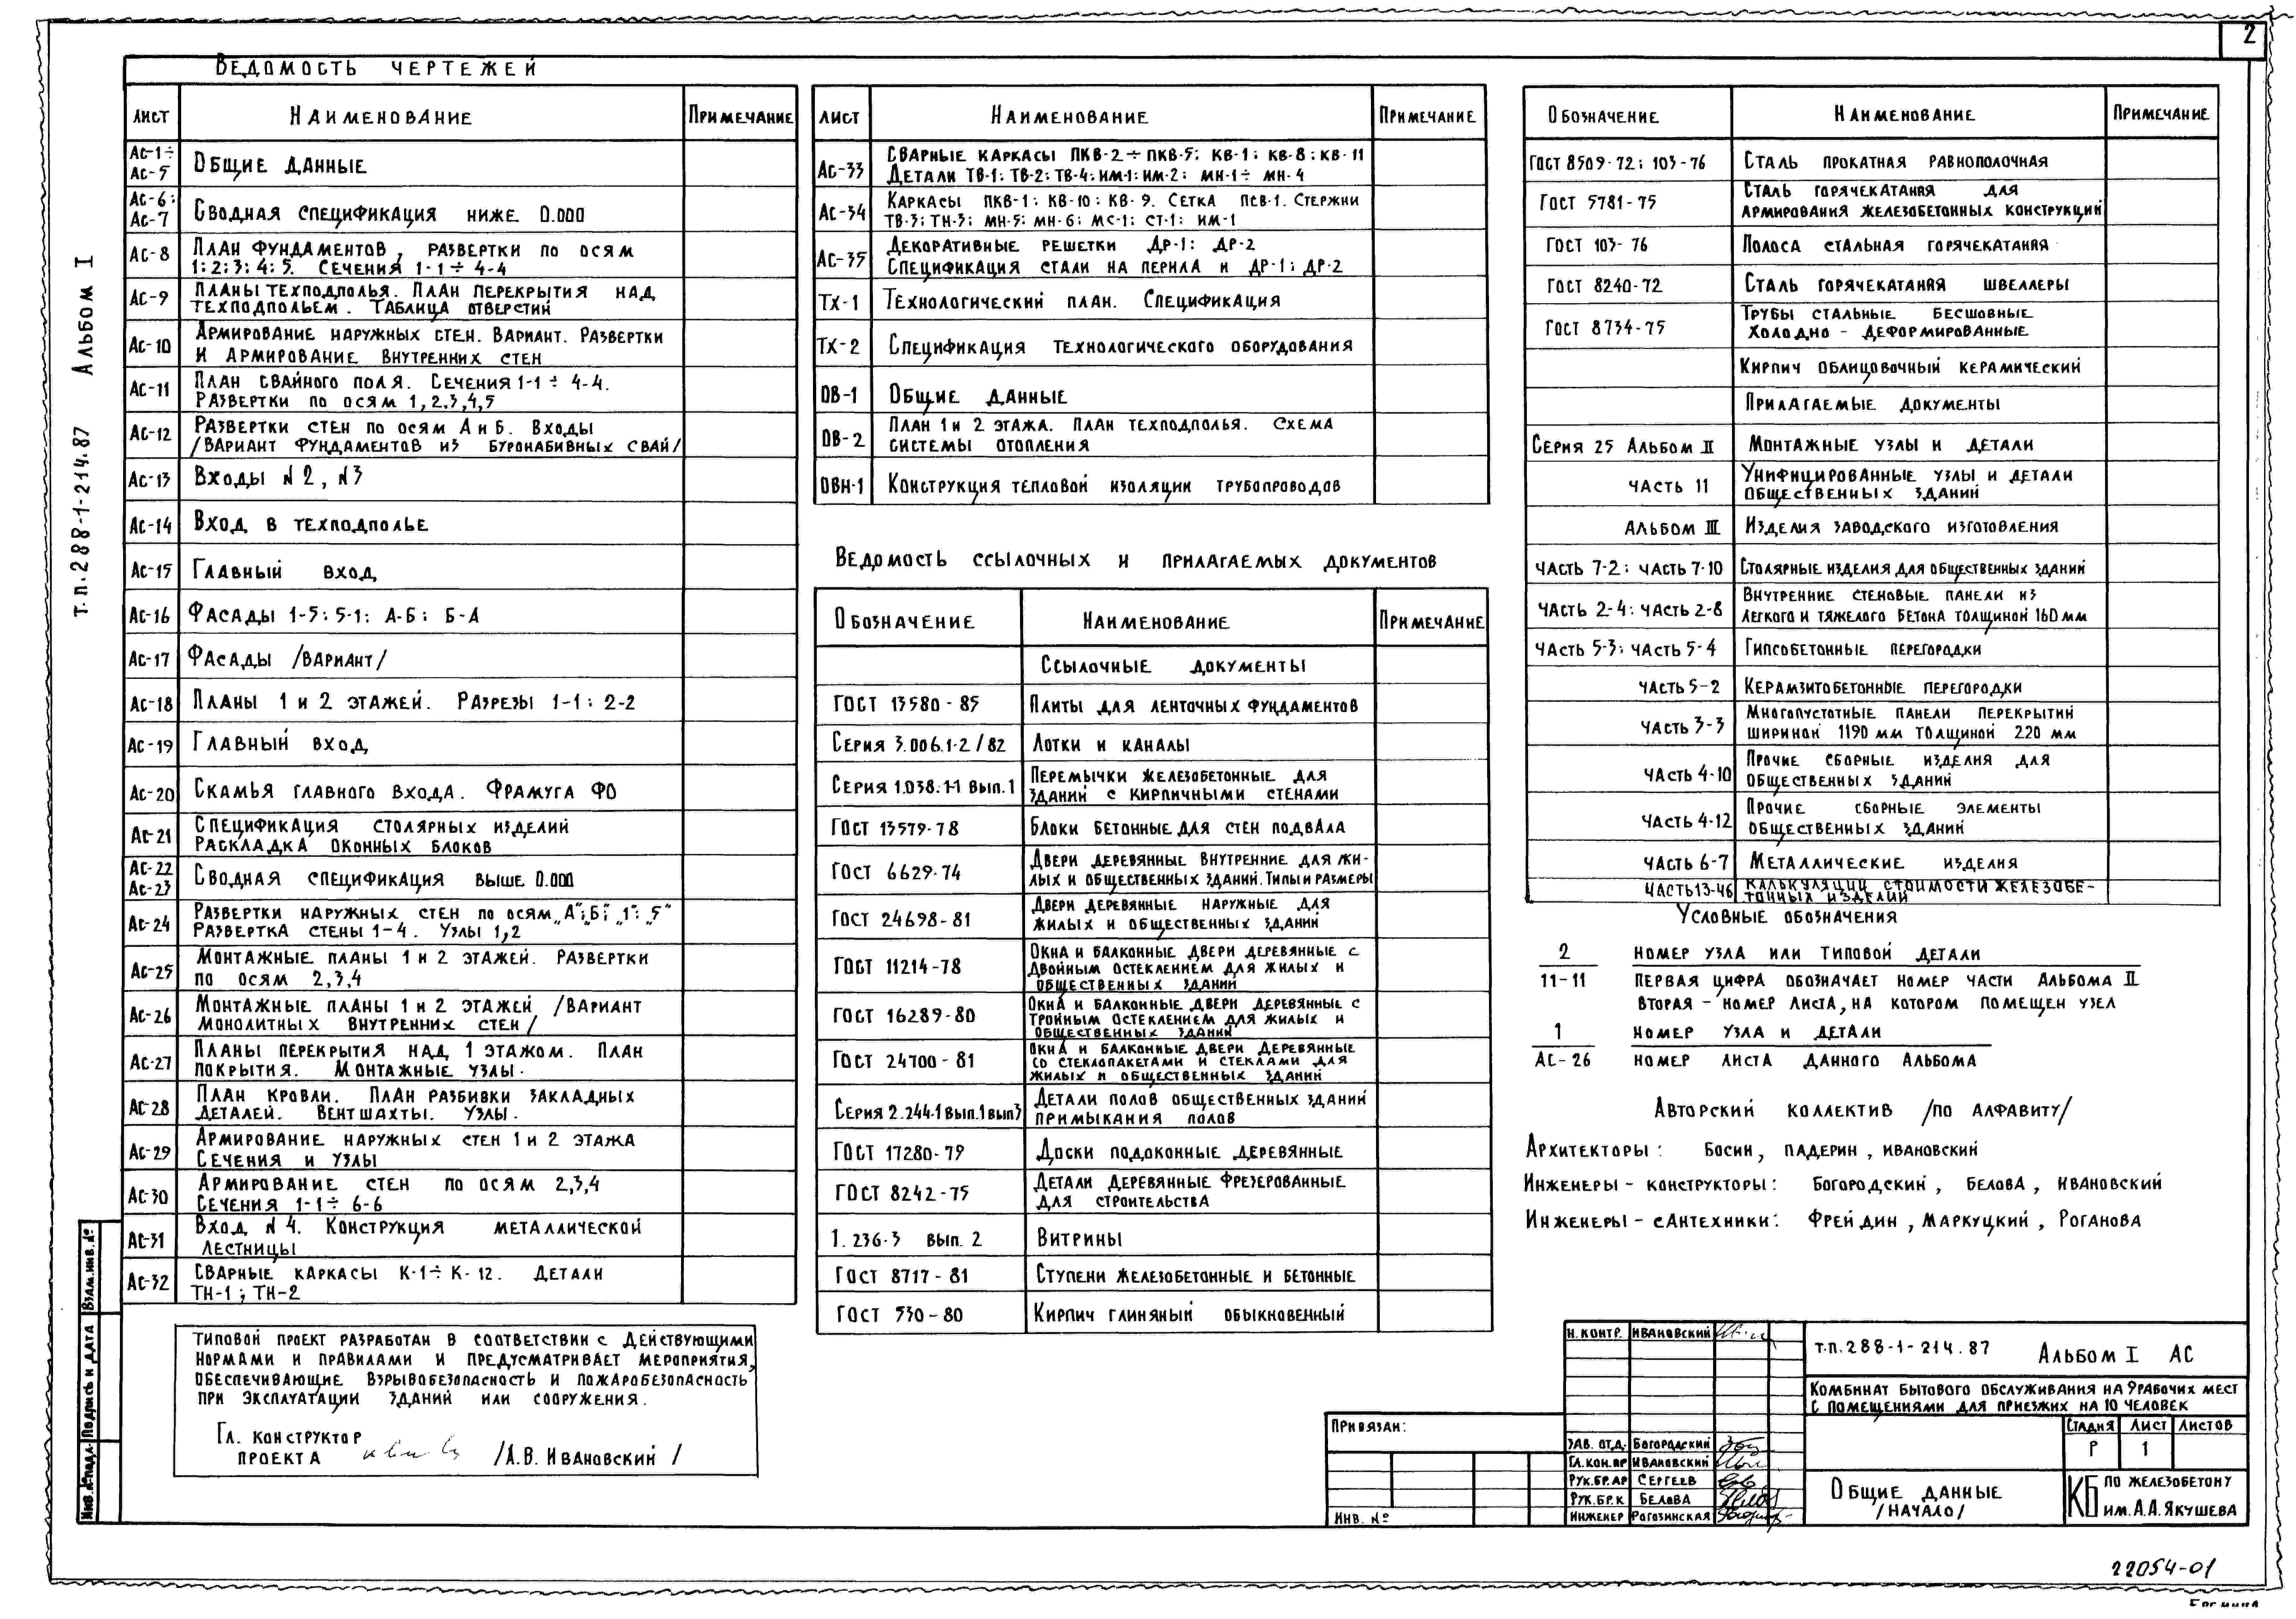 2
Т.П. 288-1-214.87 Альбом I
Ведомость чертежей
Лист Наименование Примечание
Ас-1÷ Ас-5 Общие данные
Ас-6; Ас-7 Сводная спецификация ниже 0.000
Ас-8 План фундаментов, развертки по осям
1; 2; 3; 4; 5. Сечения 1-1÷4-4
Ас-9 Планы техподполья. План перекрытия над
техподпольем. Таблица отверстий
Ас-10 Армирование наружных стен. Вариант. Развертки
и армирование внутренних стен
Ас-11 План свайного поля. Сечения 1-1÷4-4.
Развертки по осям 1,2,3,4,5
Ас-12 Развертки стен по осям А и Б. Входы
/вариант фундаментов из буронабивных свай/
Ас-13 Входы N2, N3
Ас-14 Вход в техподполье
Ас-15 Главный вход
Ас-16 Фасады 1-5; 5-1; А-Б; Б-А
Ас-17 Фасады /вариант/
Ас-18 Планы 1 и 2 этажей. Разрезы 1-1; 2-2
Ас-19 Главный вход
Ас-20 Скамья главного входа. Фрамуга ФО
Ас-21 Спецификация столярных изделий
Раскладка оконных блоков
Ас-22 Ас-23 Сводная спецификация выше 0.000
Ас-24 Развертки наружных стен по осям „А"; „Б"; „1"; „5"
Развертка стены 1-4. Узлы 1,2
Ас-25 Монтажные планы 1 и 2 этажей. Развертки
по осям 2,3,4
Ас-26 Монтажные планы 1 и 2 этажей /вариант
монолитных внутренних стен/
Ас-27 Планы перекрытия над 1 этажом. План
покрытия. Монтажные узлы.
Ас-28 План кровли. План разбивки закладных
деталей. Вентшахты. Узлы.
Ас-29 Армирование наружных стен 1 и 2 этажа
Сечения и узлы
Ас-30 Армирование стен по осям 2,3,4
Сечения 1-1÷6-6
Ас-31 Вход N4. Конструкция металлической
лестницы
Ас-32 Сварные каркасы К-1÷К-12. Детали
ТН-1; ТН-2
Типовой проект разработан в соответствии с действующими
нормами и правилами и предусматривает мероприятия,
обеспечивающие взрывобезопасность и пожаробезопасность
при эксплуатации зданий или сооружения.
Гл. конструктор
проекта /А.В. Ивановский/
Лист Наименование Примечание
Ас-33 Сварные каркасы ПКВ-2÷ПКВ-5; КВ-1; КВ-8; КВ-11
Детали ТВ-1; ТВ-2; ТВ-4; ИМ-1; ИМ-2; МН-1÷МН-4
Ас-34 Каркасы ПКВ-1; КВ-10; КВ-9. Сетка ПСВ-1. Стержни
ТВ-3; ТН-3; МН-5; МН-6; МС-1; СТ-1; ИМ-1
Ас-35 Декоративные решетки ДР-1; ДР-2
Спецификация стали на перила и ДР-1; ДР-2
ТХ-1 Технологический план. Спецификация
ТХ-2 Спецификация технологического оборудования
ОВ-1 Общие данные
ОВ-2 План 1 и 2 этажа. План техподполья. Схема
системы отопления
ОВН-1 Конструкция тепловой изоляции трубопроводов
Ведомость ссылочных и прилагаемых документов
Обозначение Наименование Примечание
Ссылочные документы
ГОСТ 13580-85 Плиты для ленточных фундаментов
Серия 3.006.1-2/82 Лотки и каналы
Серия 1.038.1-1 Вып.1 Перемычки железобетонные для
зданий с кирпичными стенами
ГОСТ 13579-78 Блоки бетонные для стен подвала
ГОСТ 6629-74 Двери деревянные внутренние для жи-
лых и общественных зданий. Типы и размеры
ГОСТ 24698-81 Двери деревянные наружные для
жилых и общественных зданий
ГОСТ 11214-78 Окна и балконные двери деревянные с
двойным остеклением для жилых и
общественных зданий
ГОСТ 16289-80 Окна и балконные двери деревянные с
тройным остеклением для жилых и
общественных зданий
ГОСТ 24700-81 Окна и балконные двери деревянные
со стеклопакетами и стеклами для
жилых и общественных зданий
Серия 2.244-1 вып.1 вып3 Детали полов общественных зданий
примыкания полов
ГОСТ 17280-79 Доски подоконные деревянные
ГОСТ 8242-75 Детали деревянные фрезерованные
для строительства
1.236-3 вып. 2 Витрины
ГОСТ 8717-81 Ступени железобетонные и бетонные
ГОСТ 530-80 Кирпич глиняный обыкновенный
Обозначение Наименование Примечание
ГОСТ 8509-72; 103-76 Сталь прокатная равнополочная
ГОСТ 5781-75 Сталь горячекатаная для
армирования железобетонных конструкций
ГОСТ 103-76 Полоса стальная горячекатаная
ГОСТ 8240-72 Сталь горячекатаная швеллеры
ГОСТ 8734-75 Трубы стальные бесшовные
холодно-деформированные
Кирпич облицовочный керамический
Прилагаемые документы
Серия 25 Альбом II Монтажные узлы и детали
часть 11 Унифицированные узлы и детали
общественных зданий
Альбом III Изделия заводского изготовления
часть 7-2; часть 7-10 Столярные изделия для общественных зданий
часть 2-4; часть 2-8 Внутренние стеновые панели из
легкого и тяжелого бетона толщиной 160 мм
часть 5-3; часть 5-4 Гипсобетонные перегородки
часть 5-2 Керамзитобетонные перегородки
часть 3-3 Многопустотные панели перекрытий
шириной 1190 мм толщиной 220 мм
часть 4-10 Прочие сборные изделия для
общественных зданий
часть 4-12 Прочие сборные элементы
общественных зданий
часть 6-7 Металлические изделия
часть 13-46 Калькуляции стоимости железобе-
тонных изделий
Условные обозначения
2 номер узла или типовой детали
11-11 первая цифра обозначает номер части Альбома II
вторая - номер листа, на котором помещен узел
1 номер узла и детали
АС-26 номер листа данного альбома
Авторский коллектив /по алфавиту/
Архитекторы: Босин, Падерин, Ивановский
Инженеры-конструкторы: Богородский, Белова, Ивановский
Инженеры-сантехники: Фрейдин, Маркуцкий, Роганова
Н. контр. Ивановский
Зав. отд. Богородский
Гл.кон.пр Ивановский
Рук.бр.ар Сергеев
Рук.бр.к Белова
Инженер Рогозинская
Привязан:
Инв. №
Т.П. 288-1-214.87 Альбом I АС
Комбинат бытового обслуживания на 9 рабочих мест
с помещениями для приезжих на 10 человек
Стадия Лист Листов
Р 1
Общие данные
/начало/
КБ по железобетону
им. А.А. Якушева
Взам. инв. №
Подпись и дата
Инв. № подл.
22054-01